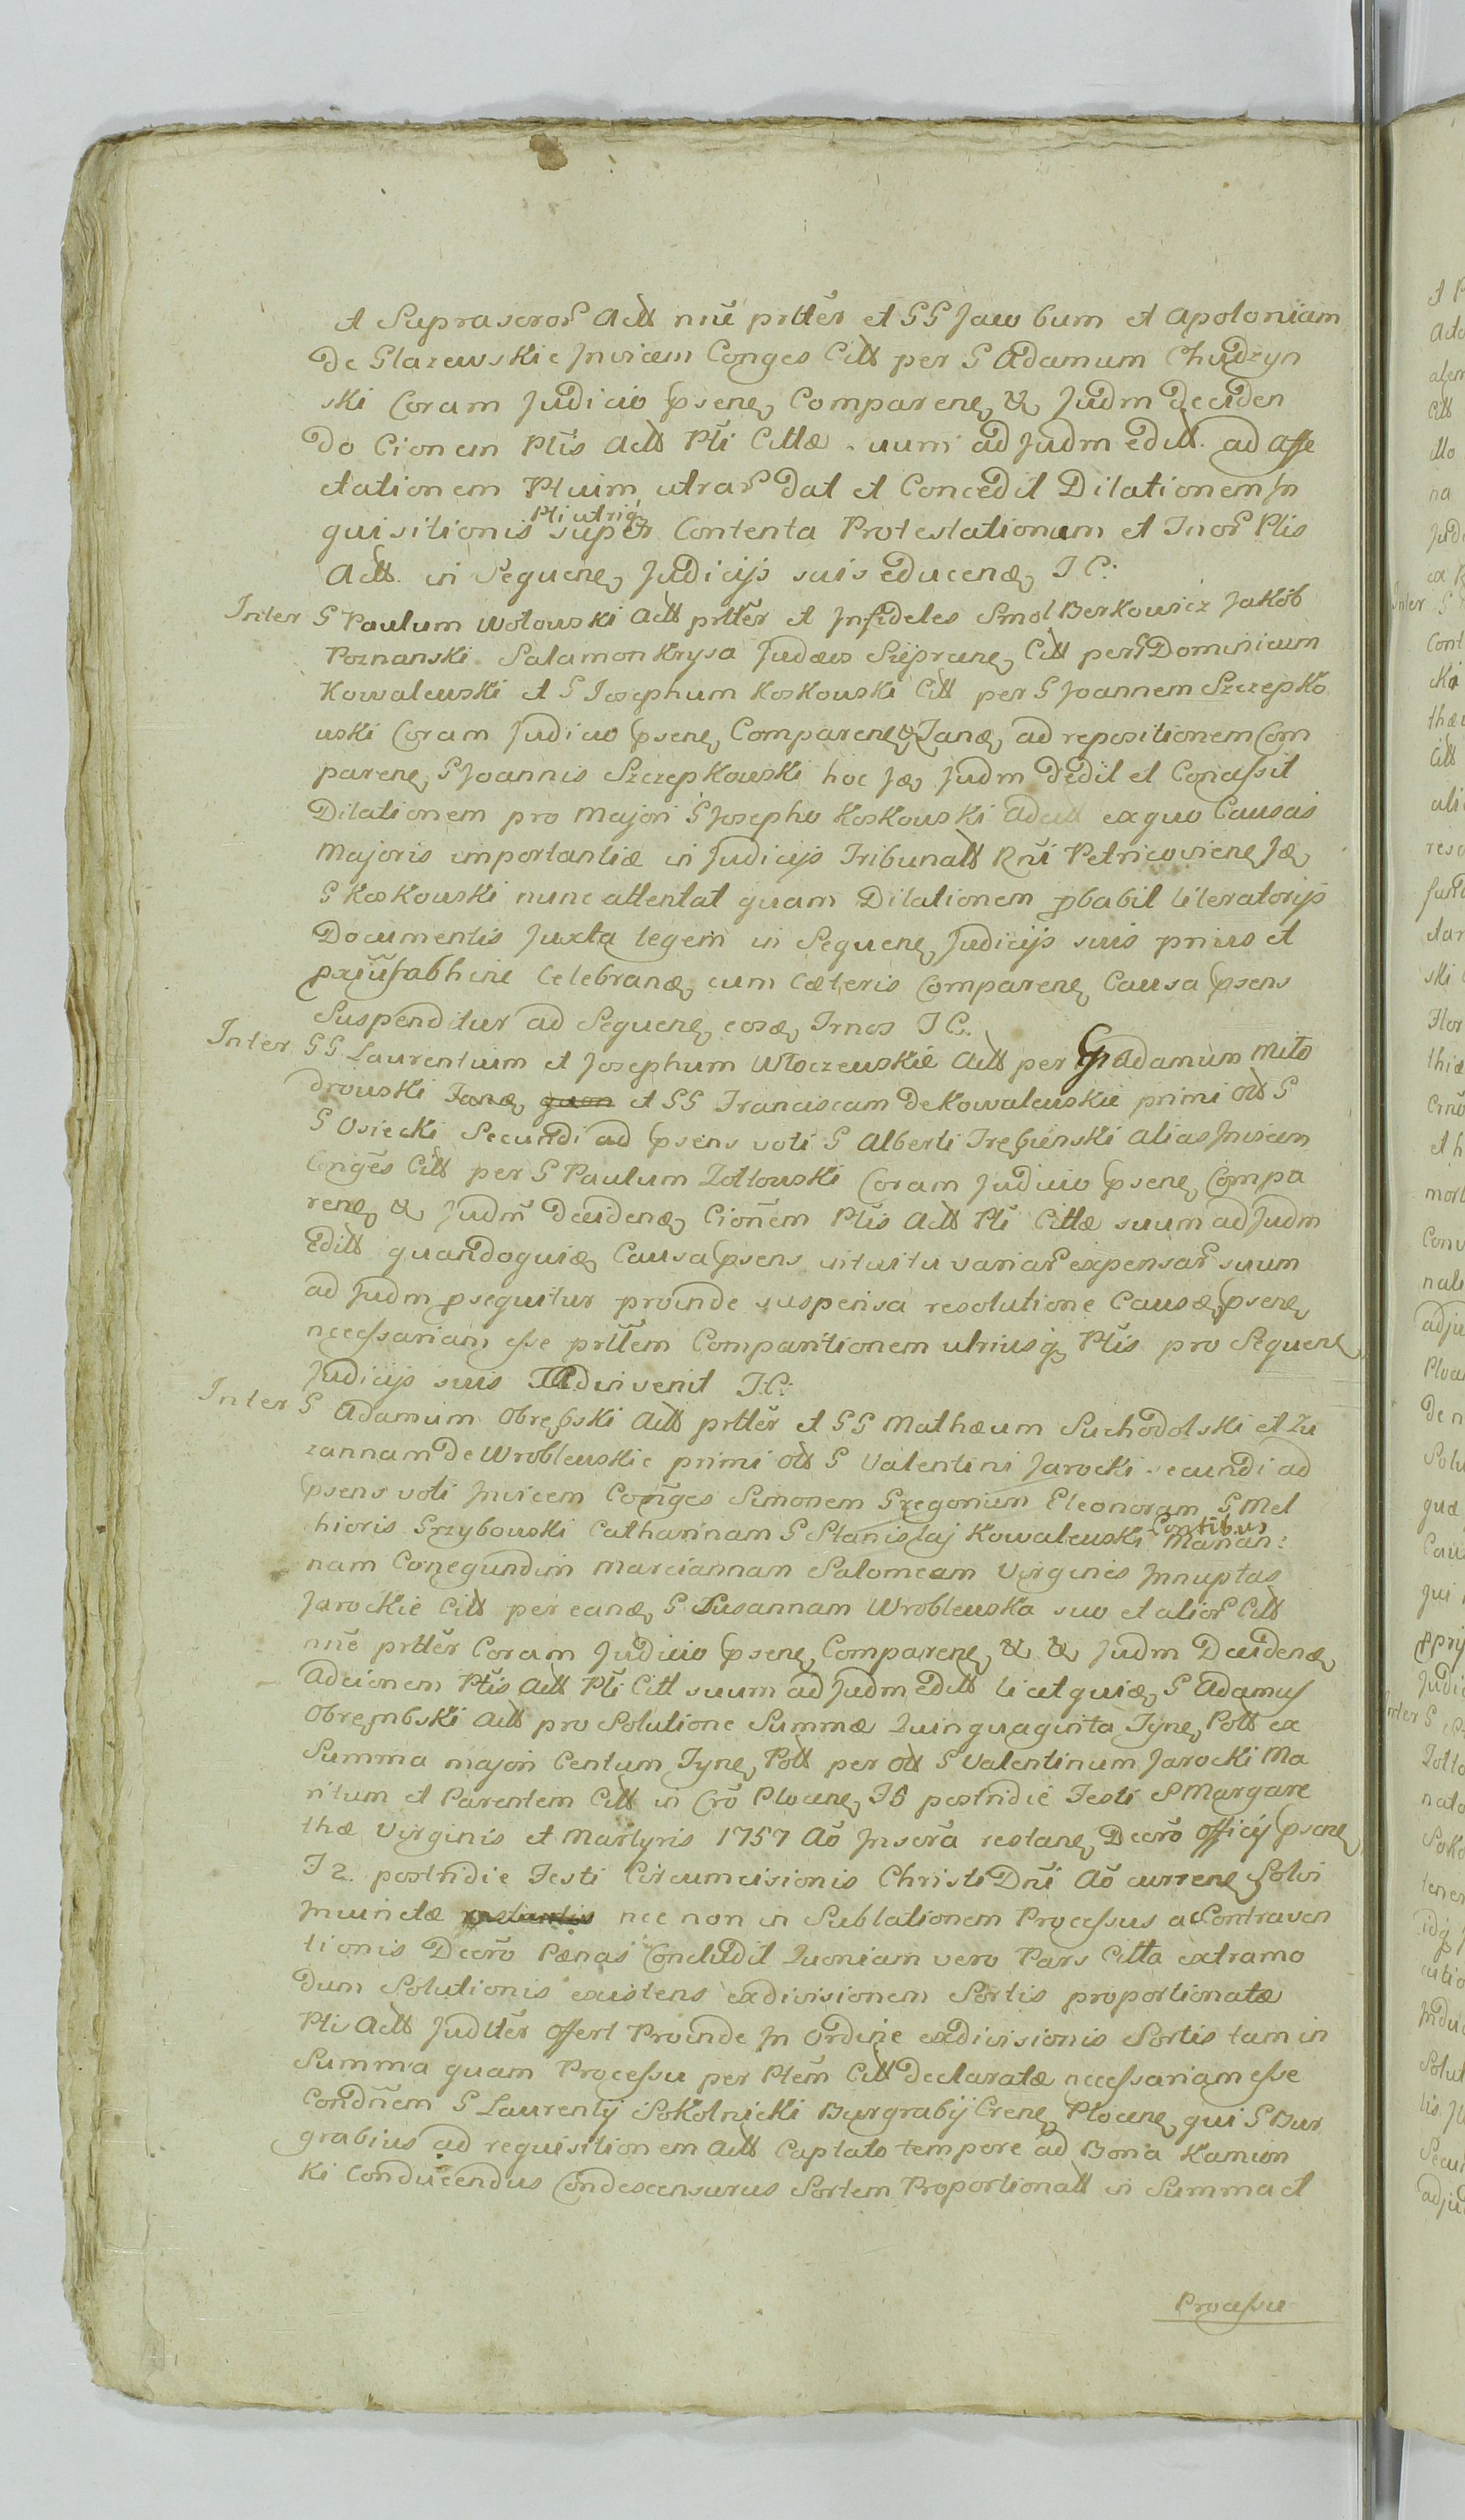 et Suprascror Actt nie prtter et GG Jacobum et Apoloniam
De Glazewskie Invicem Conges Citt per G Adamum Chudzyn
ski Coram Judicio psene, Comparene, & Judm deciden
do Cionem Ptis Actt Pti Cittæ suum ad Judm editt. ad affe
ctationem Ptium utrar dat et Concedit Dilationem In
Pti utriq
quisitionis super Contenta Protestationum et Inor Ptis
Actt. in Seguene, Judicijs suis educenæ, T C:
Inter G Paulum Wotowski Actt prtter et Infideles Smol Berkowicz Jakób
Poznanski Salamon Krysa Judæos Sieprcene, Citt per G Dominicum
Kowalewski et G Josephum Koskowski Citt per G Joannem Szczepko
wski Coram Judicio psene, Comparene, & Tanæ, ad repositionem Com
parene, G Joannis Szczepkowski hoc Jæ, Judm dedit et Concessit
Dilationem pro Majori G Josepho Koskowski exquo Causas
Majoris importantiæ in Judicijs Tribunatt Rni Petricoviene, Jæ,
G Koskowski nunc attentat quam Dilationem pbabit literatorijs
Documentis Juxta legem in Seguene, Judicijs suis primo et
pxiusabhinc Celebranæ, cum Cæteris Comparene, Causa psens
Suspenditur ad Seguene, eosæ, Trnos T C:
Inter GG Laurentium et Josephum Wtoczewskie Actt per G Adamum Mito
drowski Tanæ, et GG Franciscam de Kowalewskie primi Ott G
G Osiecki Secundi ad psens voti G Alberti Trebienski alias Invicem
Conges Citt per G Paulum Zottowski Coram Judicio psene, Compa
rene, & Judm decidenæ, Cionem Ptis Actt Pti Cittæ suum ad Judm
editt quandoquiæ, Causa psens intuitu variar expensar suum
ad Judm psequitur proinde suspensa resolutione Causæ, psene,
necessariam esse prttem Comparitionem utriusq, Ptis pro Seguene,
Judicijs suis Adinvenit T.C:
Inter G Adamum Obrębski Actt prtter et GG Mathæum Suchodolski et Zu
zannam de Wroblewskie primi Ott G Valentini Jarocki secundi ad
psens voti Invicem Conges Simonem Gregorium Eleonoram G Mel
hioris Grzybowski Catharinam G Stanislaj Kowalewski Contibus Marian:
nam Conegundim Marciannam Salomeam Virgines Innuptas
Jarockie Citt per eanæ, G Susannam Wroblewska suo et alior Citt
nie prtter Coram Judicio psene, Comparene, & & Judm Decidenæ,
Adcionem Ptis Actt Pti Citt suum ad Judm editt licet quiæ, G Adamus
Obrembski Actt pro Solutione Summæ Quinquaginta Tyne, Pott ex
Summa majori Centum Tyne, Pott per Ott G Valentinum Jarocki Ma
ritum et Parentem Citt in Cro Plocene, F6 postridie Festi S Margare
thæ Virginis et Martyris 1757 Ao Inscra restane, Decro Officij psene,
F 2. postridie Festi Circumcisionis Christi Dni Ao currene, Solvi
Iniunctæ nec non in Sublationem Processus ac Contraven
tionis Decro Pænas Concludit Quoniam vero Pars Citta extramo
dum Solutionis existens exdivisionem Sortis proportionatæ
Pti Actt Judtter Offert Proinde In Ordine exdivisionis Sortis tam in
Summa quam Processu per Ptem Citt declaratæ necessariam esse
Condnem G Laurentij Sokolnicki Burgrabij Crene, Plocene, qui G Bur
grabius ad requisitionem Actt Captato tempore ad Bona Kamion
ki Conducendus Condescensurus Sortem Proportionatt in Summa et
Processu